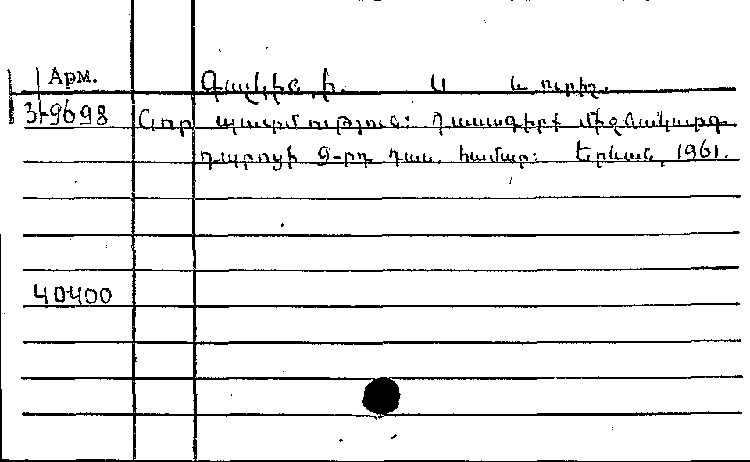 Арм.
Գալկին, Ի. Ս. և ուրիշ.
39698 Նոր պատմություն: Դասագիրք միջնակարգ
դպրոցի 9-րդ դաս. համար: Երևան, 1961.
40400